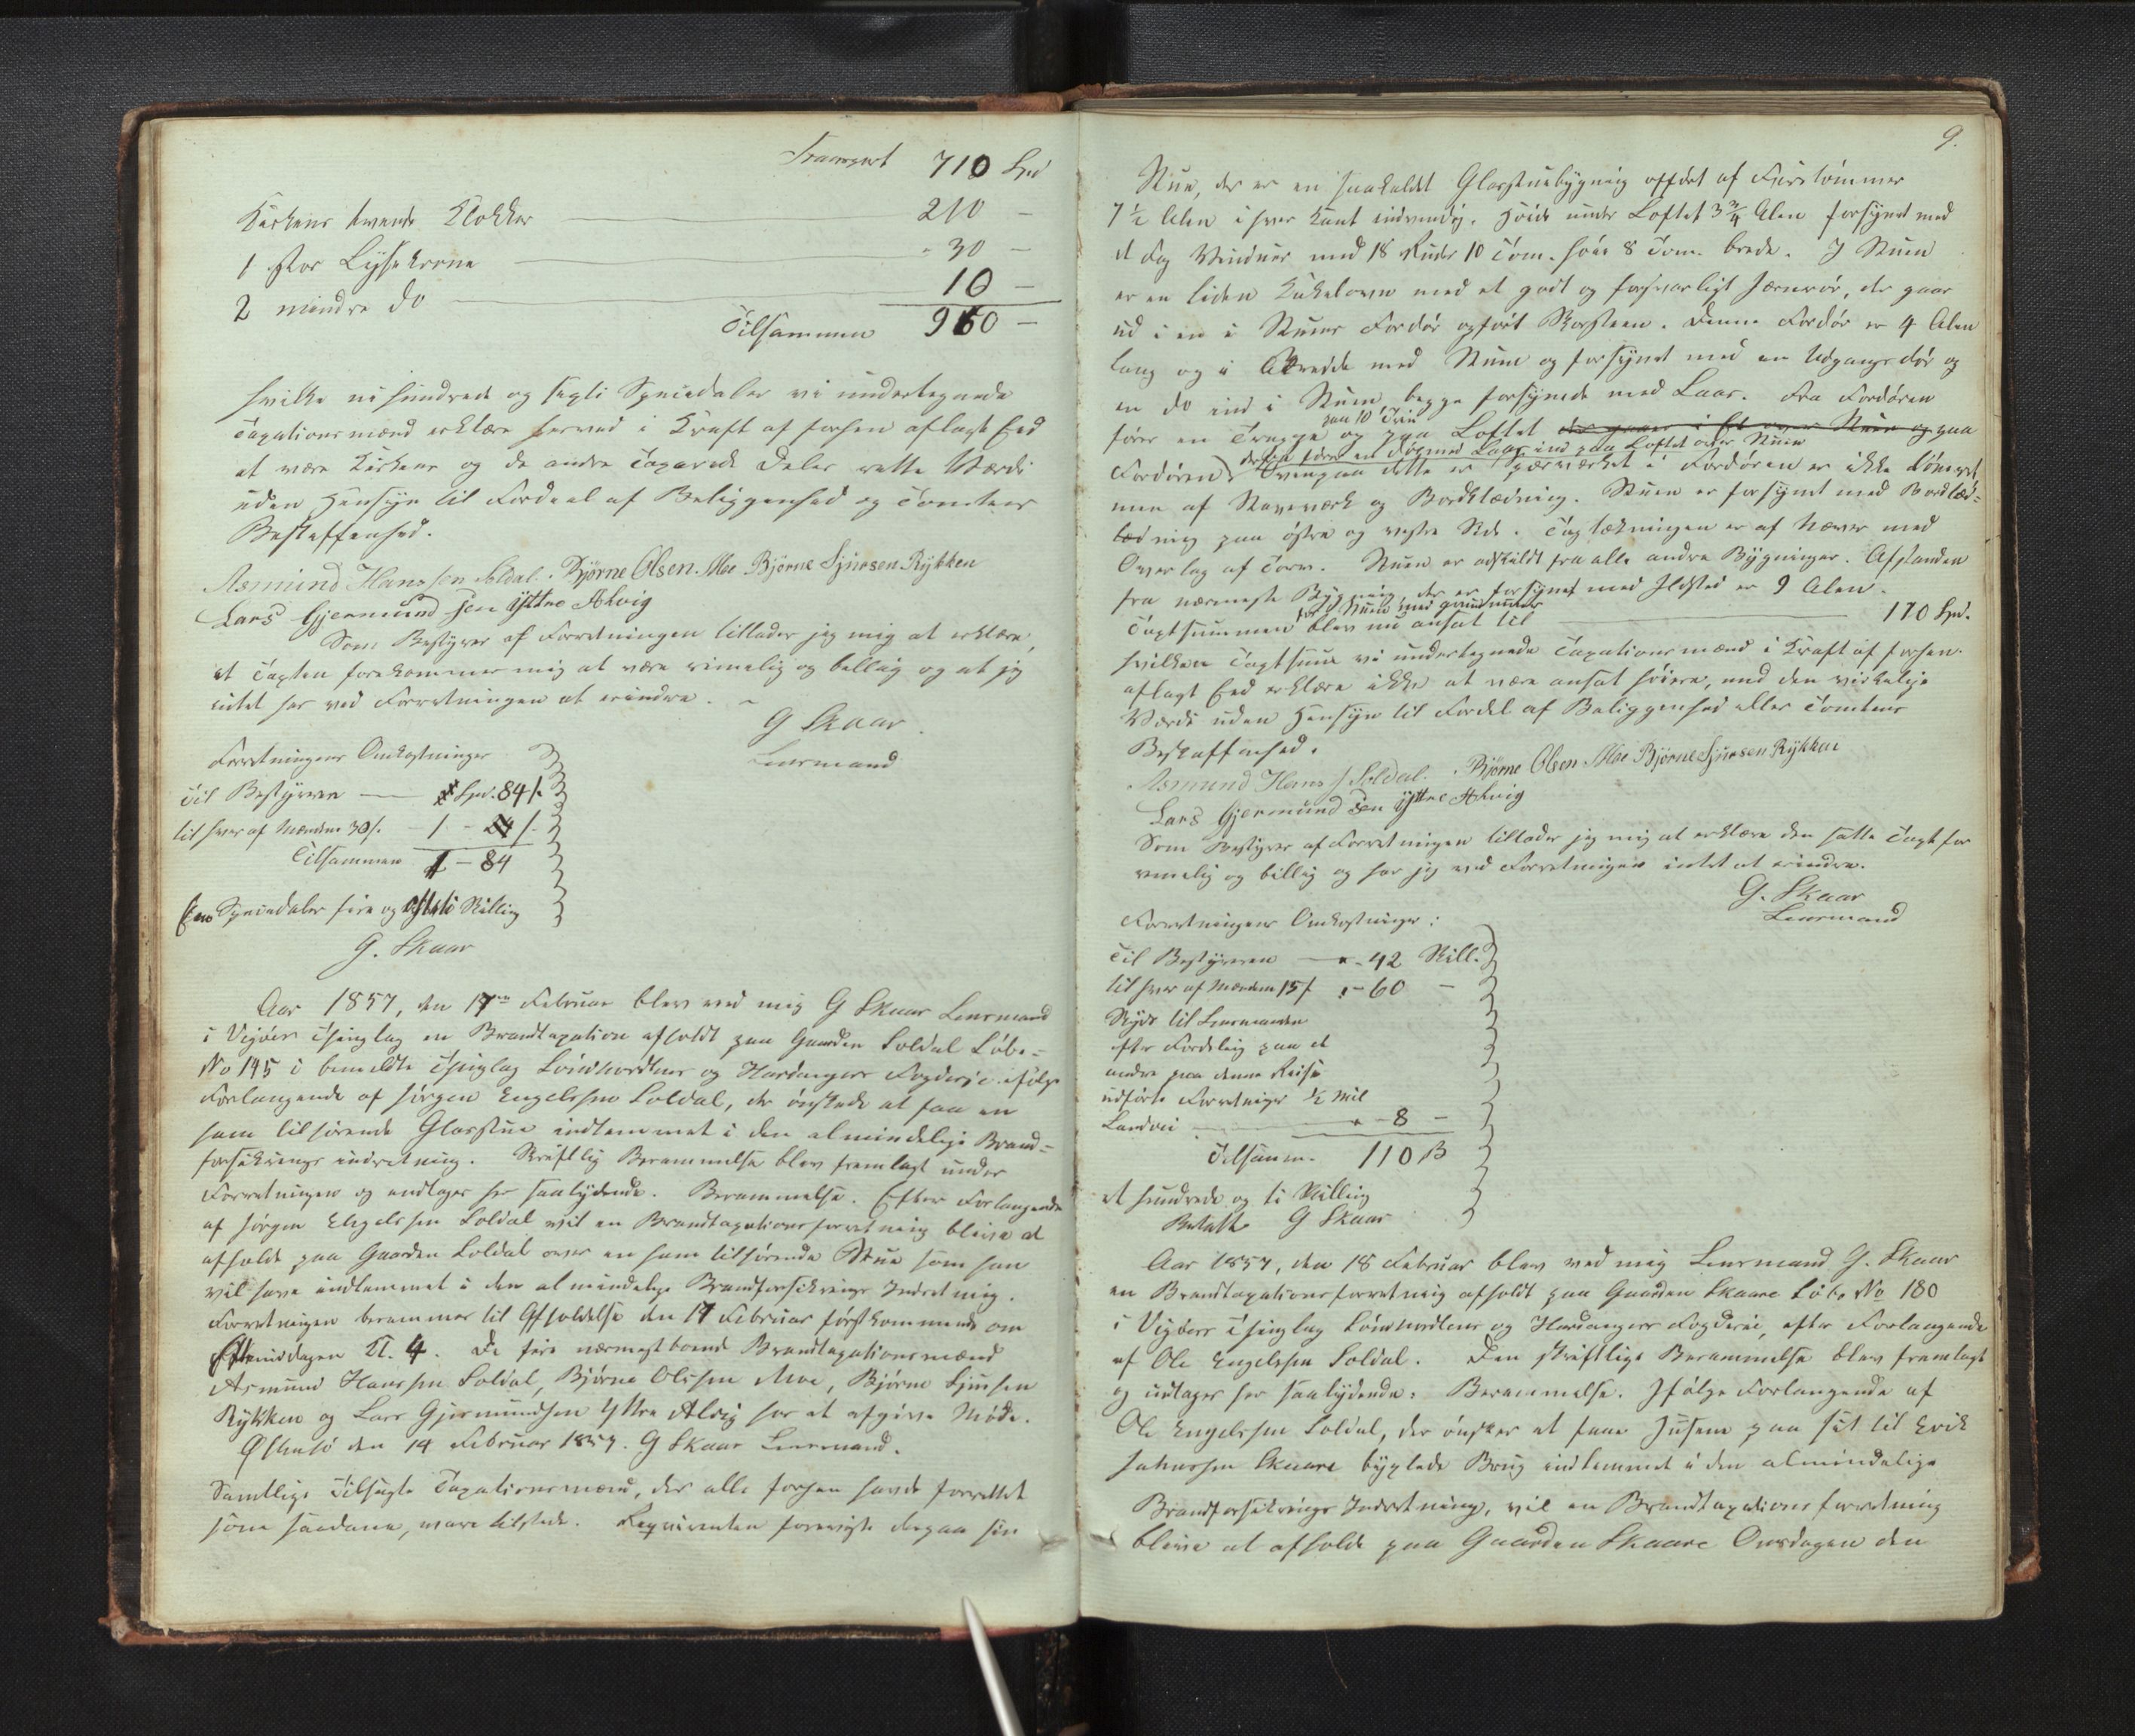 Transport 710 Spd
Kirkens tvende Klokker 210 -
1 stor Lysekrone " 30 -
2 mindre do 10 -
Tilsammen 960 -
hvilke ni hundrede og sexti Speciedaler vi undertegnede
Taxationsmænd erklære herved i Kraft af forhen aflagt Eed
at være Kirkens og de andre Taxerede Deles rette Værdi
uden Hensyn til Fordeel af Beliggenhed og Tomtens
Beskaffenhed.
Asmund Hanssen Soldal. Bjørne Olsen Moe Bjørne Sjursen Rykken
Lars Gjermundsen Yttre Ahvig
Som Bestyrer af Forretningen tillader jeg mig at erklære,
at Taxten forekommer mig at være rimelig og billig og at jeg
intet har ved Forretningen at erindre.
G Skaar
Lensmand
Forretningens Omkostninger
Til Bestyreren Spd. 84 /.
til hver af Mændene 30 /. - 1 - 24 /.
Tilsammen 1 - 84
Een Speciedaler fire og otteti Skilling
G. Skaar
Aar 1857, den 17en Februar blev ved mig G Skaar Lensmand
i Vigørs Thinglag en Brandtaxation afholdt paa Gaarden Soldal Løbe-
No 145 i bemeldte Thinglag Søndhordlens og Hardangers Fogderie ifølge
Forlangende af Jørgen Engelssen Soldal, der ønskede at faa en
ham tilhørende Glasstue indlemmet i den almindelige Brand-
forsikrings indretning. Skriftlig Berammelse blev fremlagt under
Forretningen og indtages her saalydende. Berammelse. Efter Forlangende
af Jørgen Engelssen Soldal vil en Brandtaxationsforretning blive at
afholde paa Gaarden Soldal over en ham tilhørende Stue som han
vil have indlemmet i den almindelige Brandforsikrings Indretning.
Forretningen berammes til Afholdelse den 17 Februar førstkommende om
Eftermiddagen Kl. 4. De fire nærmestboende Brandtaxationsmænd
Asmund Hanssen Soldal, Bjørne Olssen Moe, Bjørne Sjursen
Rykken og Lars Gjermundsen Yttre Alvig har at afgive Møde.
Østensø den 14 Februar 1857. G Skaar Lensmand.
Samtlige Tilsagte Taxationsmænd, der alle forhen havde forrettet
som saadanne, vare tilstede. Requirenten foreviste derpaa sin
9.
Stue, der er en saakaldet Glasstuebygning opført af Furetømmer
7 1/2 Alen i hver Kant indvendig. Høide under Loftet 3 3/4 Alen forsynet med
et Fag Vinduer med 18 Ruder 10 Tom. høie 8 Tom. brede. I Stuen
er en liden Kakelovn med et godt og forsvarligt Jernrør, der gaar
ud i en i Stuens Fordør opført Skorsteen. Denne Fordør er 4 Alen
lang og i Bredde med Stuen og forsynet med en Udgangsdør og
en do ind i Stuen begge forsynede med Laas. Fra Fordøren
paa 10 Trin
fører en Trappe op paa Loftet der gaaer i Et over Stuen og paa
derfra fører en Dør med Laas ind paa Loftet over Stuen
Fordøren. Ovenpaa dette er Spærværket i Fordøren er ikke tømret
men af Stavværk og Bordklædning. Stuen er forsynet med Bordklæd-
ning paa østre og vestre Side. Taglækningen er af Næver med
Overlag af Torv. Stuen er adskildt fra alle andre Bygninger. Afstanden
fra nærmeste Bygning, der er forsynet med Ildsted er 9 Alen.
for Stuen med grundmuur
Taxtsummen blev nu ansat til 170 Spd.
hvilken Taxtsum vi undertegnede Taxationsmænd i Kraft af forhen
aflagt Eed erklære ikke at være ansat høiere, end den virkelige
Værdi uden Hensyn til Fordel af Beliggenhed eller Tomtens
Beskaffenhed.
Asmund Hans S Soldal. Bjørne Olsen Moe Bjørne Sjursen Rykken
Lars Gjermundsen Yttre Ahvig
Som Bestyrer af Forretningen tillader jeg mig at erklære den satte Taxt for
rimelig og billig og har jeg ved Forretningen intet at erindre.
G. Skaar
Lensmand
Forretningens Omkostninger:
Til Bestyreren " - 42 Skill.
til hver af Mændene 15 / " - 60 -
Skyds til Lensmanden
efter Fordeling paa et
andre paa denne Reise
udførte Forretninger 1/2 Mil
Landvei " - 8 -
Tilsamm. 110 ß
et hundrede og ti Skilling
Betalt G Skaar
Aar 1857, den 18 Februar blev ved mig Lensmand G. Skaar
en Brandtaxationsforretning afholdt paa Gaarden Skaare Løbe No 180
i Vigørs Thinglag Søndhordlens og Hardangers Fogderie, efter Forlangende
af Ole Engelssen Soldal. Den skriftlige Berammelse blev fremlagt
og indtages her saalydende: Berammelse. Ifølge Forlangende af
Ole Engelssen Soldal, der ønsker at faae Husene paa sit til Erik
Johnssen Skaare byxlede Brug indlemmet i den almindelige
Brandforsikrings Indretning, vil en Brandtaxations forretning
blive at afholde paa Gaarden Skaare Onsdagen den